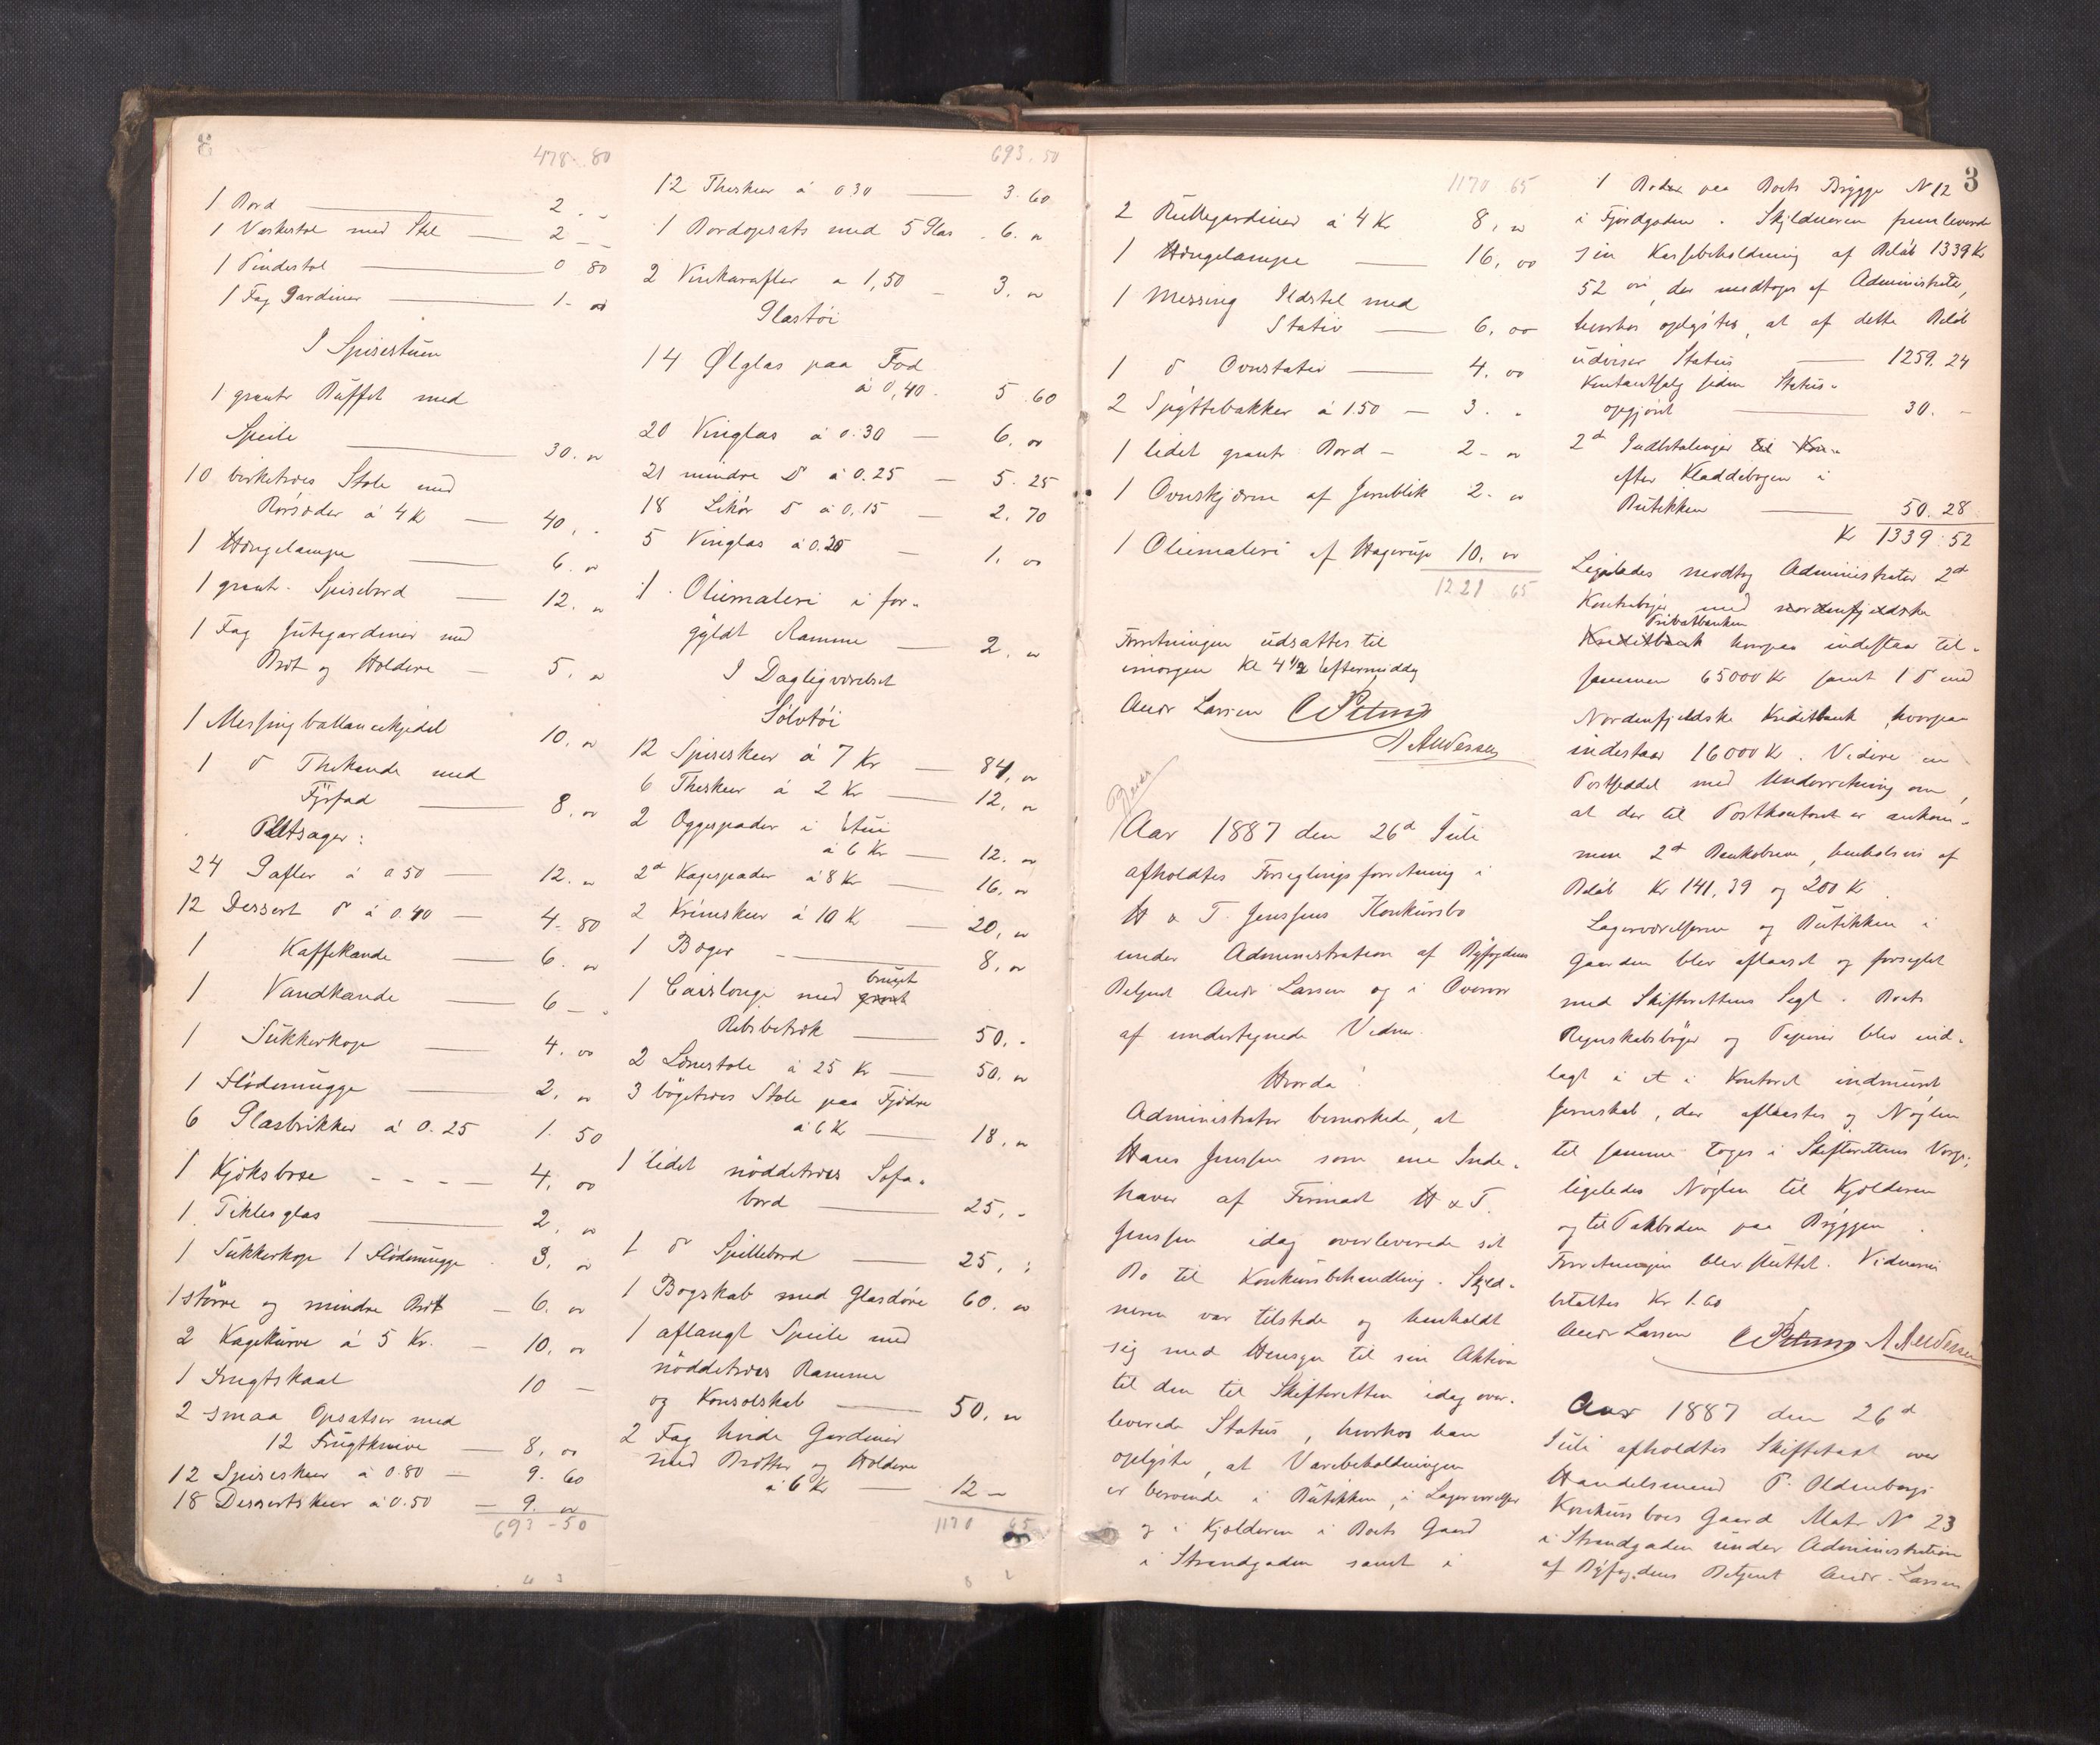 478. 80
1 Bord 2. -
1 Vaskestol med Stel 2 - -
1 Pindestol 0 80
1 Fag Gardiner 1. -
I Spisestuen
1 granb Buffet med
Speile 30. "
10 birketræes Stole med
Rørsæder á 4 K 40. -
1 Hængelampe 6. "
1 granb. Spisebord 12. "
1 Fag Jutegardiner med
Bræt og Holdere 5. "
1 Messingballancekjedel 10. "
1 d Thekande med
Fyrfad 8. "
Pletsager:
24 Gafler á 0 50 12. "
12 Dessert d á 0.40 4. 80
1 Kaffekande 6. "
1 Vandkande 6 -
1 Sukkerkop 4. 00
1 Flödemugge 2. "
6 Glasbrikker á 0.25 1. 50
1 Kjæksbose 4. 00
1 Piklesglas 2. "
1 Sukkerkop 1 Flödemugge 3. "
1 större og mindre Bræt 6. "
2 Kagekurve á 5 Kr. 10. "
1 Frugtskaal 10 -
2 smaa Opsatser med
12 Frugtknive 8. 00
12 Spiseskeer á 0.80 9. 60
18 Dessertskeer á 0.50 9. "
693 - 50
693. 50
12 Theskeer á 0 30 3. 60
1 Bordopsats med 5 Glas 6. "
2 Vinkarafler a 1,50 3. "
Glastöi
14 Ølglas paa Fod
á 0,40. 5. 60
20 Vinglas á 0.30 6. "
21 mindre d á 0.25 5. 25
18 Likör d á 0.15 2. 70
5 Vinglas á 0.20 1. 00
1 Oliemaleri i for-
gyldt Ramme 2. "
I Dagligværelset
Sölvtöi
12 Spiseskeer á 7 Kr 84. "
6 Theskeer á 2 Kr 12. "
2 Oggespader i Etui
á 6 Kr 12. "
2d Kagespader á 8 Kr 16. "
2 Krémskeer á 10 K 20. "
1 Bæger 8. "
1 Caislonge med brunt
Ribsbetræk 50. -
2 Lænestole á 25 Kr 50. "
3 bögetræes Stole paa Fjedre
á 6 K 18. "
1 lidet nöddetræes Sofa-
bord 25. -
1 d Spillebord 25. "
1 Bogskab med Glasdöre 60. "
1 aflangt Speile med
nöddetræes Ramme
og Konsolskab 50. "
2 Fag hvide Gardiner
med Brætter og Holdere
á 6 K 12 -
1170 65
1170 65
2 Rullegardiner á 4 Kr 8. "
1 Hængelampe 16. 00
1 Messing Ildstel med
Stativ 6. 00
1 d Ovnstativ 4. 00
2 Spyttebakker á 1.50 3. "
1 lidet granb Bord 2 - "
1 Ovnskjærm af Jernblik 2. "
1 Oliemaleri af Hagerup 10. "
1221 65
Forretningen udsattes til
imorgen Kl 4 1/2 Eftermiddag
Andr Larsen
A Andersen
Aar 1887 den 26d Juli
afholdtes Forseglingsforretning i
H & T. Jenssens Konkursbo
under Administration af Byfogdens
Betjent Andr Larsen og i Overvær
af undertegnede Vidner.
Hvorda!
Administrator bemærkede, at
Hans Jenssen som ene Inde-
haver af Firmaet H & T.
Jenssen idag overleverede sit
Bo til Konkursbehandling. Skyld-
neren var tilstede og henholdt
sig med Hensyn til sin Aktiva
til den til Skifteretten idag over-
leverede Status, hvorhos han
oplyste, at Varebeholdningen
er beroende i Butikken, i Lagerværelser
og i Kjælderen i Boets Gaard
i Strandgaden samt i
3
1 Boder paa Boets Brygge N 12
i Fjordgaden. Skyldneren fremleverede
sin Kassebeholdning af Beløb 1339 Kr
52 øre, der modtoges af Administrator,
hvorhos oplystes, at af dette Beløb
udviser Status 1259. 24
Kontantsalg siden Status-
opgjört 30. -
2d Indbetalinger
efter Kladdebogen i
Butikken 50. 28
Kr 1339. 52
Ligeledes modtog Administrator 2d
Kontrabøger med nordenfjeldske
Privatbanken
Kreditbank hvorpaa indestaar til-
sammen 65000 Kr samt 1 d med
Nordenfjeldske Kreditbank, hvorpaa
indestaar 16000 Kr. Videre en
Postseddel med Underretning om,
at der til Postkontoret er ankom-
men 2d Bankobreve, henholdsvis af
Beløb Kr 141,39 og 200 K.
Lagerværelserne og Butikken i
Gaarden blev aflaaset og forseglet
med Skifterettens Segl. Boets
Regnskabsbøger og Papirer blev ind-
lagt i et i Kontoret indmuret
Jernskab, der aflaastes og Nøglen
til samme toges i Skifterettens Værge,
ligeledes Nøglen til Kjælderen
og til Pakboden paa Bryggen.
Forretningen blev sluttet. Vidnerne
betaltes Kr 1.60
Andr Larsen A Andersen
Aar 1887 den 26d
Juli afholdtes Skiftetaxt over
Handelsmand P. Oldenborgs
Konkursboes Gaard Matr N 23
i Strandgaden under Administration
af Byfogdens Betjent Andr. Larsen